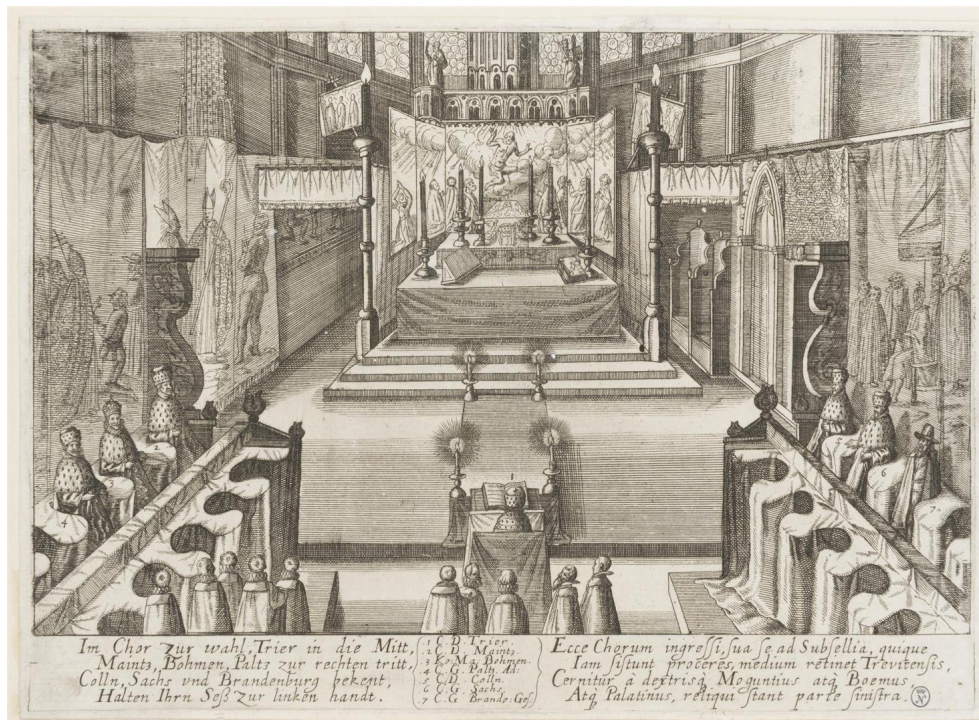 Im Chor zur wahl, Trier in die Mitt,
Maintz, Böhmen, Paltz zur rechten tritt,
Colln, Sachs vnd Brandenburg bekent,
Halten Ihrn Seß zur linken handt.
.1 C. D. Trier.
.2 C. D. Maintz.
.3 Kö. Ma. Böhmen.
.4 C. G. Paltz. Ad:
.5 C. D. Colln.
.6 C. G. Sachs.
.7 C. G. Brande. Ges.
Ecce Chorum ingressi, sua se ad Subsellia, quique
Iam sistunt proceres, medium retinet Trevirensis,
Cernitur à dextris Moguntius atq, Boemus,
Atq, Palatinus, reliqui stant parte sinistra.
1
2
3
4
5
6
7